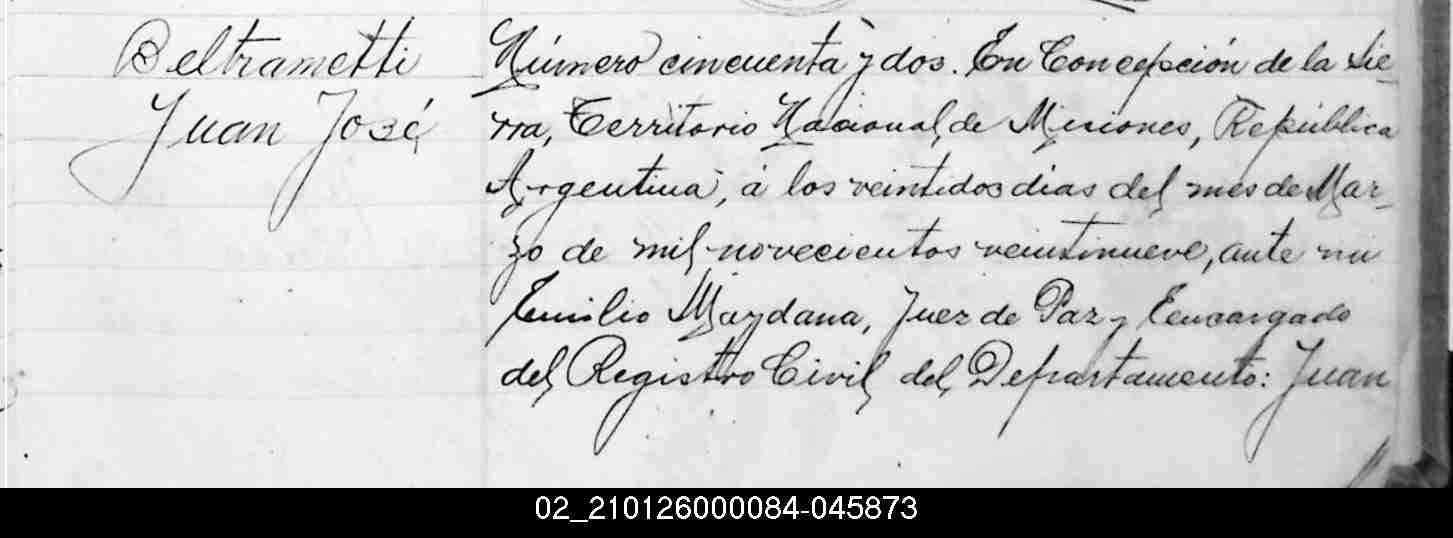 Beltrametti
Juan José
Número cincuenta y dos. En Concepción de la Sie-
rra, Territorio Nacional de Misiones, República
Argentina, á los veintidos dias del mes de Mar-
zo de mil novecientos veintinueve, ante mi
Emilio Maydana, Juez de Paz y Encargado
del Registro Civil del Departamento: Juan
02_210126000084-045873